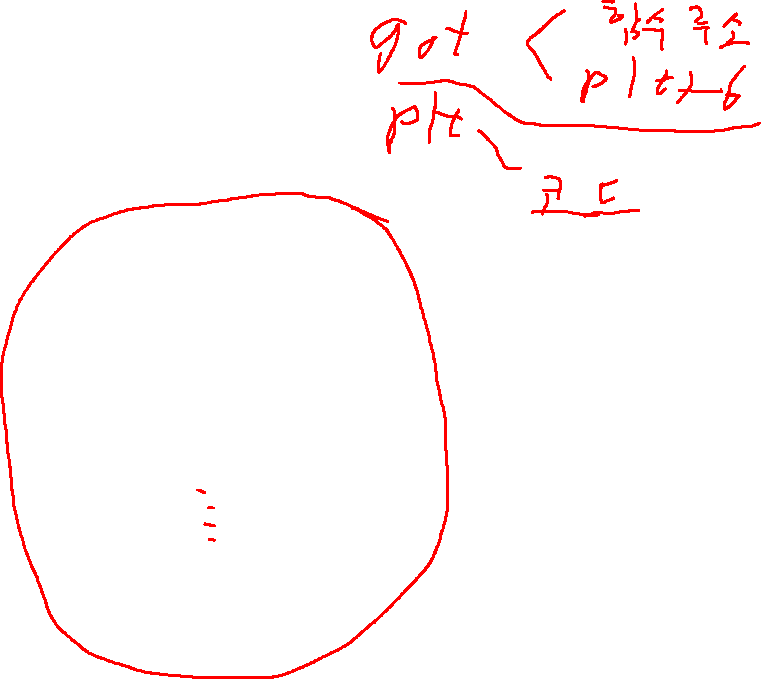 got < 함수 주소
plt+6
plt
코드